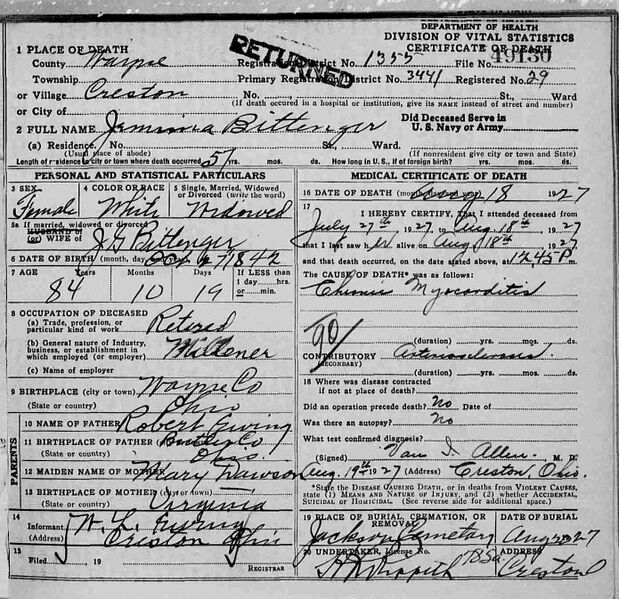 DEPARTMENT OF HEALTH
DIVISION OF VITAL STATISTICS
CERTIFICATE OF DEATH
1 PLACE OF DEATH
RETURNED
49130
County Wayne Registration District No. 1355 File No.
Township Primary Registration District No. 3441 Registered No. 29
or Village Creston No. St., Ward
(If death occured in a hospital or institution, give its NAME instead of street and number)
or City of
2 FULL NAME Jemimia Bittenger
Did Deceased Serve in
U. S. Navy or Army
(a) Residence. No. St., Ward.
(Usual place of abode) (If nonresident give city or town and State)
Length of residence in city or town where death occurred 51 yrs. mos. ds. How long in U. S., if of foreign birth? yrs. mos. ds.
PERSONAL AND STATISTICAL PARTICULARS
3 SEX 4 COLOR OR RACE 5 Single, Married, Widowed or Divorced (write the word)
Female White Widowed
5a If married, widowed or divorced
HUSBAND of
(or) WIFE of J G Bittenger
6 DATE OF BIRTH (month, day, 1842
7 AGE Years Months Days If LESS than
1 day, hrs.
or min.
84 10 19
8 OCCUPATION OF DECEASED
(a) Trade, profession, or
particular kind of work Retired
(b) General nature of Industry,
business, or establishment in
which employed (or employer)
(c) Name of employer
9 BIRTHPLACE (city or town) Wayne Co
(State or country) Ohio
PARENTS
10 NAME OF FATHER Robert Ewing
11 BIRTHPLACE OF FATHER Butler Co
(State or country) Ohio.
12 MAIDEN NAME OF MOTHER Mary Dawson
13 BIRTHPLACE OF MOTHER
(State or country) Virginia
14
Informant W. L. Ewing
(Address) Creston Ohio
15
Filed , 19
REGISTRAR
MEDICAL CERTIFICATE OF DEATH
16 DATE OF DEATH (month, Aug 18 1927
17
I HEREBY CERTIFY, That I attended deceased from
July 27th, 1927 to Aug 18th, 1927
that I last saw her alive on Aug 18th, 1927
and that death occurred, on the date stated above, at 12 45 P m.
The CAUSE OF DEATH* was as follows:
Chronic Myocarditis
90
(duration) yrs. mos. ds.
CONTRIBUTORY Arteriosclerosis
(SECONDARY)
(duration) yrs. mos. ds.
18 Where was disease contracted
if not at place of death?
Did an operation precede death? No Date of
Was there an autopsy? No
What test confirmed diagnosis?
(Signed) Van I. Allen, M. D.
Aug. 19th 1927 (Address) Creston, Ohio.
*State the DISEASE CAUSING DEATH, or in deaths from VIOLENT CAUSES,
state (1) MEANS AND NATURE OF INJURY, and (2) whether ACCIDENTAL,
SUICIDAL or HOMICIDAL (See reverse side for additional space).
19 PLACE OF BURIAL, CREMATION, OR REMOVAL DATE OF BURIAL
Jackson Cemetary Aug 20 27
20 UNDERTAKER, License No. ADDRESS
Creston O